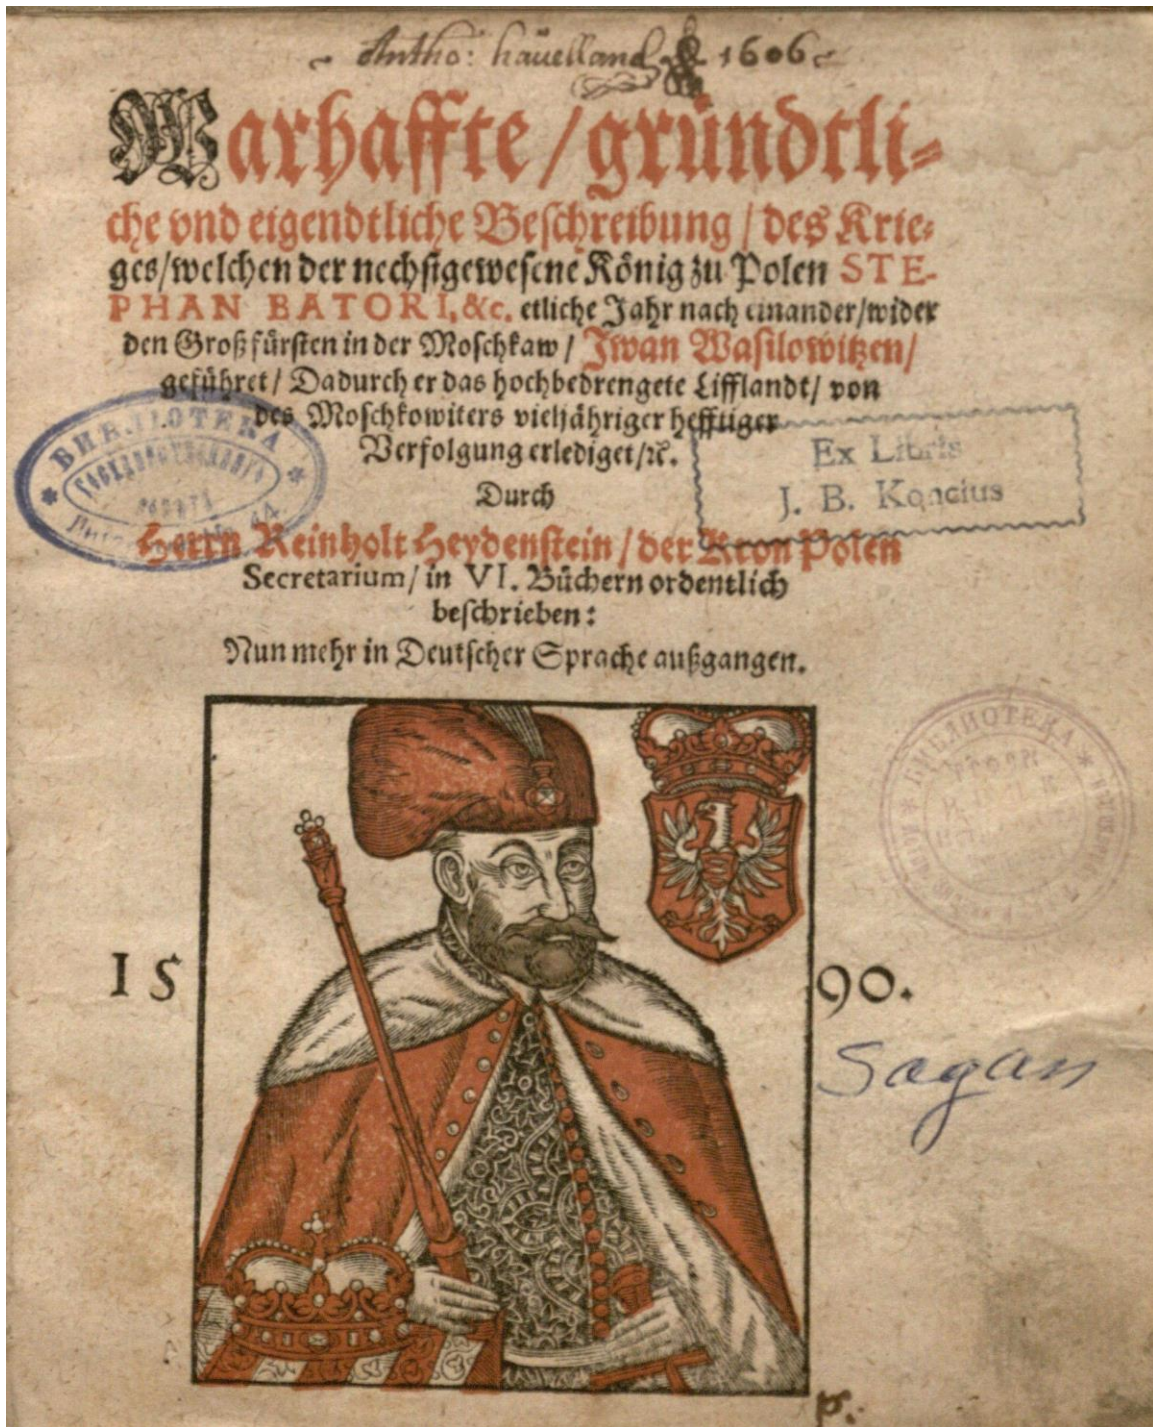 Antho: häuelland 1606
Warhaffte / gründtli-
che vnd eigendtliche Beschreibung / des Krie-
ges / welchen der nechstgewesene König zu Polen STE-
PHAN BATORI, &c. etliche Jahr nach einander / wider
den Großfürsten in der Moschkaw / Iwan Wasilowitzen /
geführet / Dadurch er das hochbedrengete Lifflandt / von
des Moschkowiters vieljähriger hefftiger
Verfolgung erlediget / ꝛc.
БИБЛІОТЕКА
Ex Libris
J. B. Končius
Durch
Herrn Reinholt Heydenstein / der Kron Polen
Secretarium / in VI. Büchern ordentlich
beschrieben:
Nun mehr in Deutscher Sprache außgangen.
БИБЛИОТЕКА
15 90.
Sagan
p.